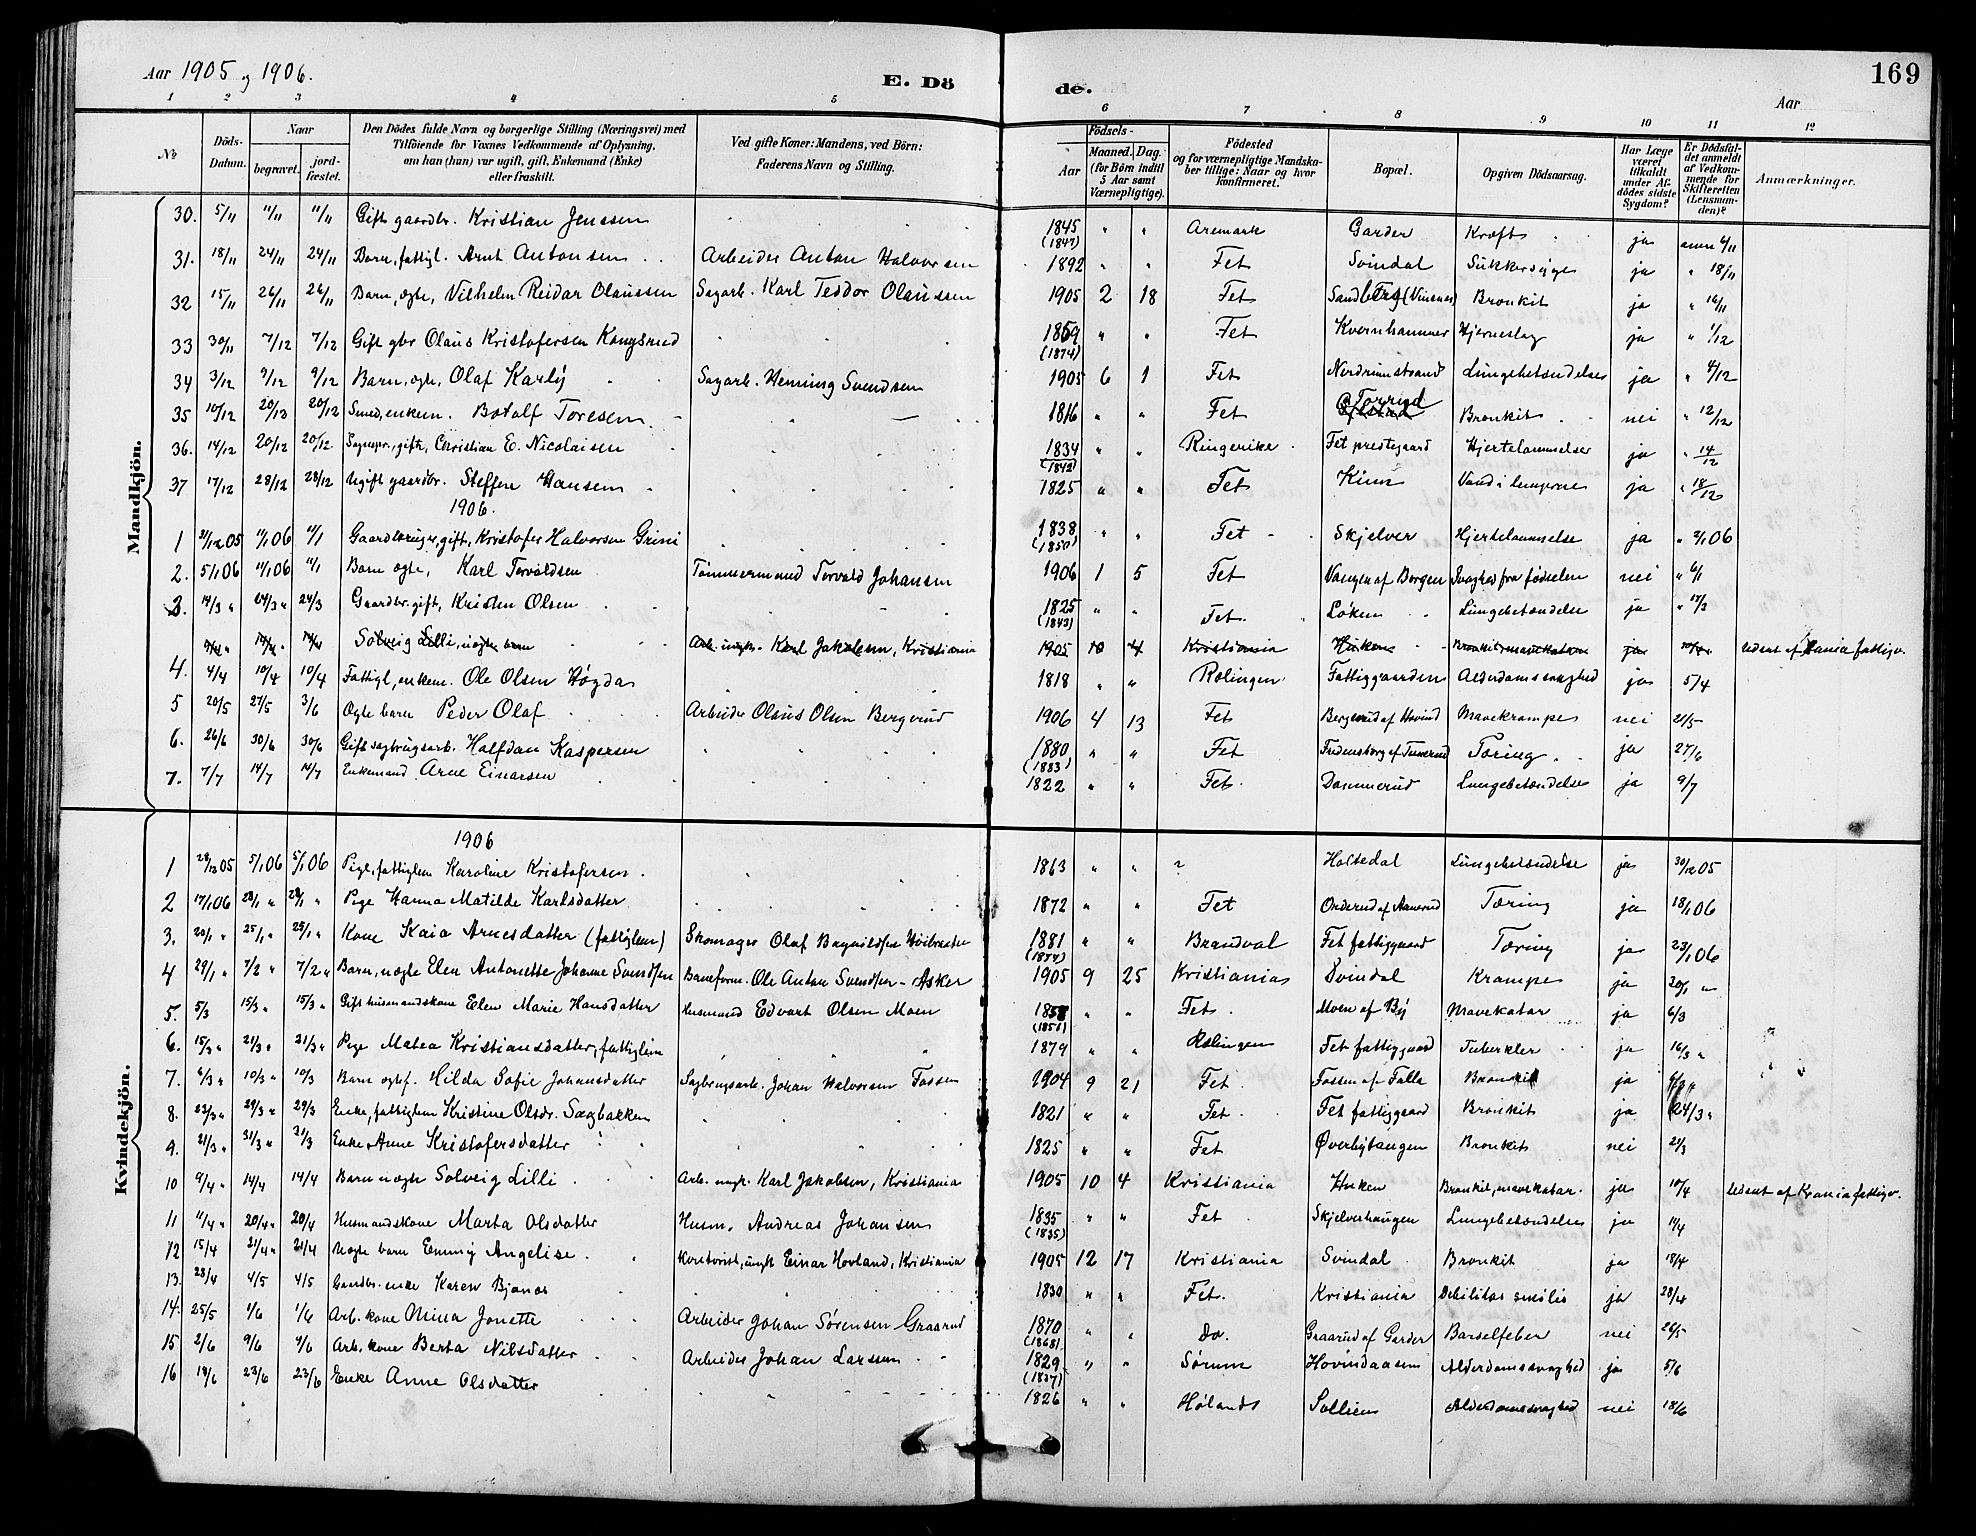 Aar 1905 og 1906. E. Dö de. Aar 169
1 2 3 4 5 6 7 8 9 10 11 12
No Döds-Datum. Naar begravet. jord-fæstet. Den Dödes fulde Navn og borgerlige Stilling (Næringsvei) med Tilföiende for Voxnes Vedkommende af Oplysning, om han (hun) var ugift, gift, Enkemand (Enke) eller fraskilt. Ved gifte Koner: Mandens, ved Börn: Faderens Navn og Stilling. Födsels- Aar Maaned. Dag. (for Börn indtil 5 Aar samt Værnepligtige). Födested og for værnepligtige Mandskaber tillige: Naar og hvor konfirmeret. Bopæl. Opgiven Dödsaarsag. Har Læge været tilkaldt under Afdödes sidste Sygdom? Er Dödsfaldet anmeldt af Vedkommende for Skifteretten (Lensmanden)? Anmærkninger.
Mandkjön.
30. 5/11 11/11 11/11 Gift gaardbr. Kristian Jenssen " 1845 (1847) " " Aremark Garder Kræft ja anm 6/11
31. 18/11 24/11 24/11 Barn, fattigl. Arnt Antonsen Arbeider Anton Halvorsen 1892 " " Fet Svindal Sukkersyge ja " 18/11
32 15/11 26/11 26/11 Barn, ægte, Vilhelm Reidar Olaussen Sagarb. Karl Teodor Olaussen 1905 2 18 Fet Sandberg (Vinsnes) Bronkit ja " 16/11
33 30/11 7/12 7/12 Gift gbr Olaus Kristofersen Kongsrud " 1859 (1874) " " Fet Kvernhammer Hjerneslag ja " 1/12
34 3/12 9/12 9/12 Barn, ægte, Olaf Karly Sagarb. Henning Svendsen 1905 6 1 Fet Nordrumstrand Lungebetændelse ja " 4/12
35 10/12 20/12 20/12 Smed, enkem. Botolf Toresen — 1816 " " Fet Torrud Bronkit nei " 12/12
36. 14/12 20/12 20/12 gift, Christian E. Nicolaisen " 1834 (1842) " " Ringerike Fet prestegaard Hjertelammelse ja " 14/12
37 17/12 28/12 28/12 Ugift gaardbr. Steffen Hansen " 1825 " " Fet Kinn Vand i lungerne ja " 18/12
1906.
1 31/12 05 11/1 06 11/1 Gaardbruger, gift, Kristofer Halvorsen Grini " 1838 (1850) " " Fet Skjelver Hjertelammelse ja " 2/1 06
2. 5/1 06 11/1 06 11/1 Barn ægte, Karl Torvaldsen Tømmermand Torvald Johansen 1906 1 5 Fet Vangen af Borgen Svaghed fra fødselen nei " 6/1
3. 14/3 " 24/3 " 24/3 Gaardbr. gift, Kristen Olsen " 1825 (1843) " " Fet. Løken Lungebetændelse ja " 17/3
9/4 " 14/4 " 14/4 Solveig Lilli, uægte barn Arb. ungk. Karl Jakobsen, Kristiania 1905 10 4 Kristiania Huken Bronkit, mavekatar ja 10/4 Udsat af Krania fattigv.
4. 4/4 10/4 10/4 Fattigl, enkem. Ole Olsen Høgda 1818 " " Rælingen Fattiggaarden Alderdomssvaghed ja 5/4
5 20/5 27/5 3/6 Ægte barn Peder Olaf Arbeider Olaus Olsen Bergerud 1906 4 13 Fet Bergerud af Hovind Mavekrampe nei 21/5
6. 26/6 30/6 30/6 Gift sagbrugsarb. Halfdan Kaspersen " 1880 (1883) " " Fet Fredensborg af Tunerud Tæring ja 27/6
7. 7/7 14/7 14/7 Enkemand Arne Einarsen 1822 " " Fet Dammerud Lungebetændelse ja 9/7
Kvindekjön.
1906
1 28/12 05 5/1 06 5/1 06 Pige, fattiglem Karoline Kristofersen " 1863 " " " Holtedal Lungebetændelse ja 30/12 05
2 17/1 06 28/1 " 28/1 " Pige Hanna Matilde Karlsdatter " 1872 " " Fet Orderud af Aamerud Tæring ja 18/1 06
3. 20/1 " 25/1 " 25/1 " Kone Kaia Arnesdatter (fattiglem) Skomager Olaf 1881 (1874) " " Brandval Fet fattiggaard Tæring ja 23/1 06
4 29/1 " 7/2 " 7/2 " Barn, uægte Elen Antonette Johanne Svendsen Baneform. Ole Anton Svendsen - Asker 1905 9 25 Kristiania Svindal Krampe ja 30/1 "
5. 5/3 15/3 " 15/3 " Gift husmandskone Elen Marie Hansdatter Husmand Edvart Olsen Moen 1858 (1851) " " Fet Moen af By Mavekatar ja 6/3
6. 15/3 " 21/3 " 21/3 " Pige Matea Kristiansdatter, fattiglem " 1879 " " Rælingen Fet fattiggaard Tuberkler ja 16/3 "
7. 6/3 " 10/3 " 10/3 Barn ægtef. Hilda Sofie Johansdatter Sagbrugsarb. Johan Halvorsen Fossen 1904 9 21 Fet Fossen af Falla Bronkit ja
8. 23/3 " 29/3 " 29/3 Enke, fattiglem Kristine Olsdr. Sagbakken " 1821 " " Fet Fet fattiggaard Bronkit ja 24/3 "
9. 21/3 " 31/3 " 31/3 Enke Anne Kristofersdatter " 1825 " " Fet Øverbytangen Bronkit nei 21/3
10 9/4 " 14/4 14/4 Barn uægte Solveig Lilli Arb. ungk. Karl Jakobsen, Kristiania 1905 10 4 Kristiania Huken Bronkit, mavekatar. ja 10/4 Udsat af Krania fattigv.
11 11/4 " 20/4 " 20/4 Husmandskone Marta Olsdatter Husm. Andreas Johansen 1835 (1835) " " Fet Skjelverhaugen Lungebetændelse ja 11/4
12 15/4 21/4 " 21/4 Uægte barn Emmy Angelise ungk Einar Hovland, Kristiania 1905 12 17 Kristiania Svindal Bronkit ja 18/4
13. 28/4 4/5 4/5 Gaardbr. enke Karen Bjanes " 1830 " " Fet. Kristiania Debilitas senilis ja 28/4
14. 25/5 1/6 1/6 Arb. kone Mina Jonette Arbeider Johan Sørensen Graarud 1870 (1868) " " do. Graarud af Garder Barselfeber nei 26/5
15 2/6 9/6 9/6 Arb. kone Berta Nilsdatter Arbeider Johan Larssen 1829 (1837) " " Sørum Hovindaasen Alderdomssvaghed ja 5/6
16 18/6 23/6 23/6 Enke Anne Olsdatter " 1826 " " Høland Sollien Alderdomssvaghed nei 18/6